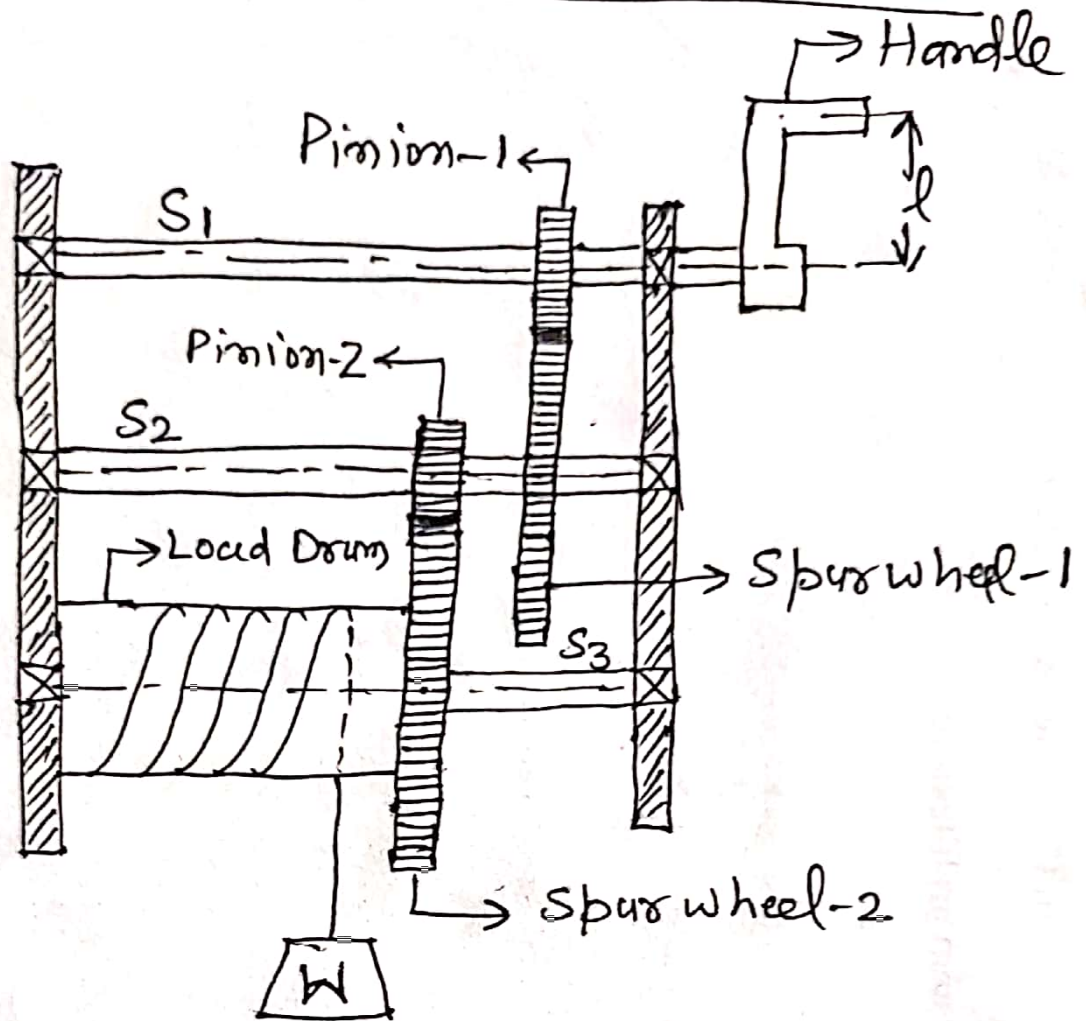 Handle
Pinion-1
l
S1
Pinion-2
S2
Load Drum
Spur wheel-1
S3
Spur wheel-2
W